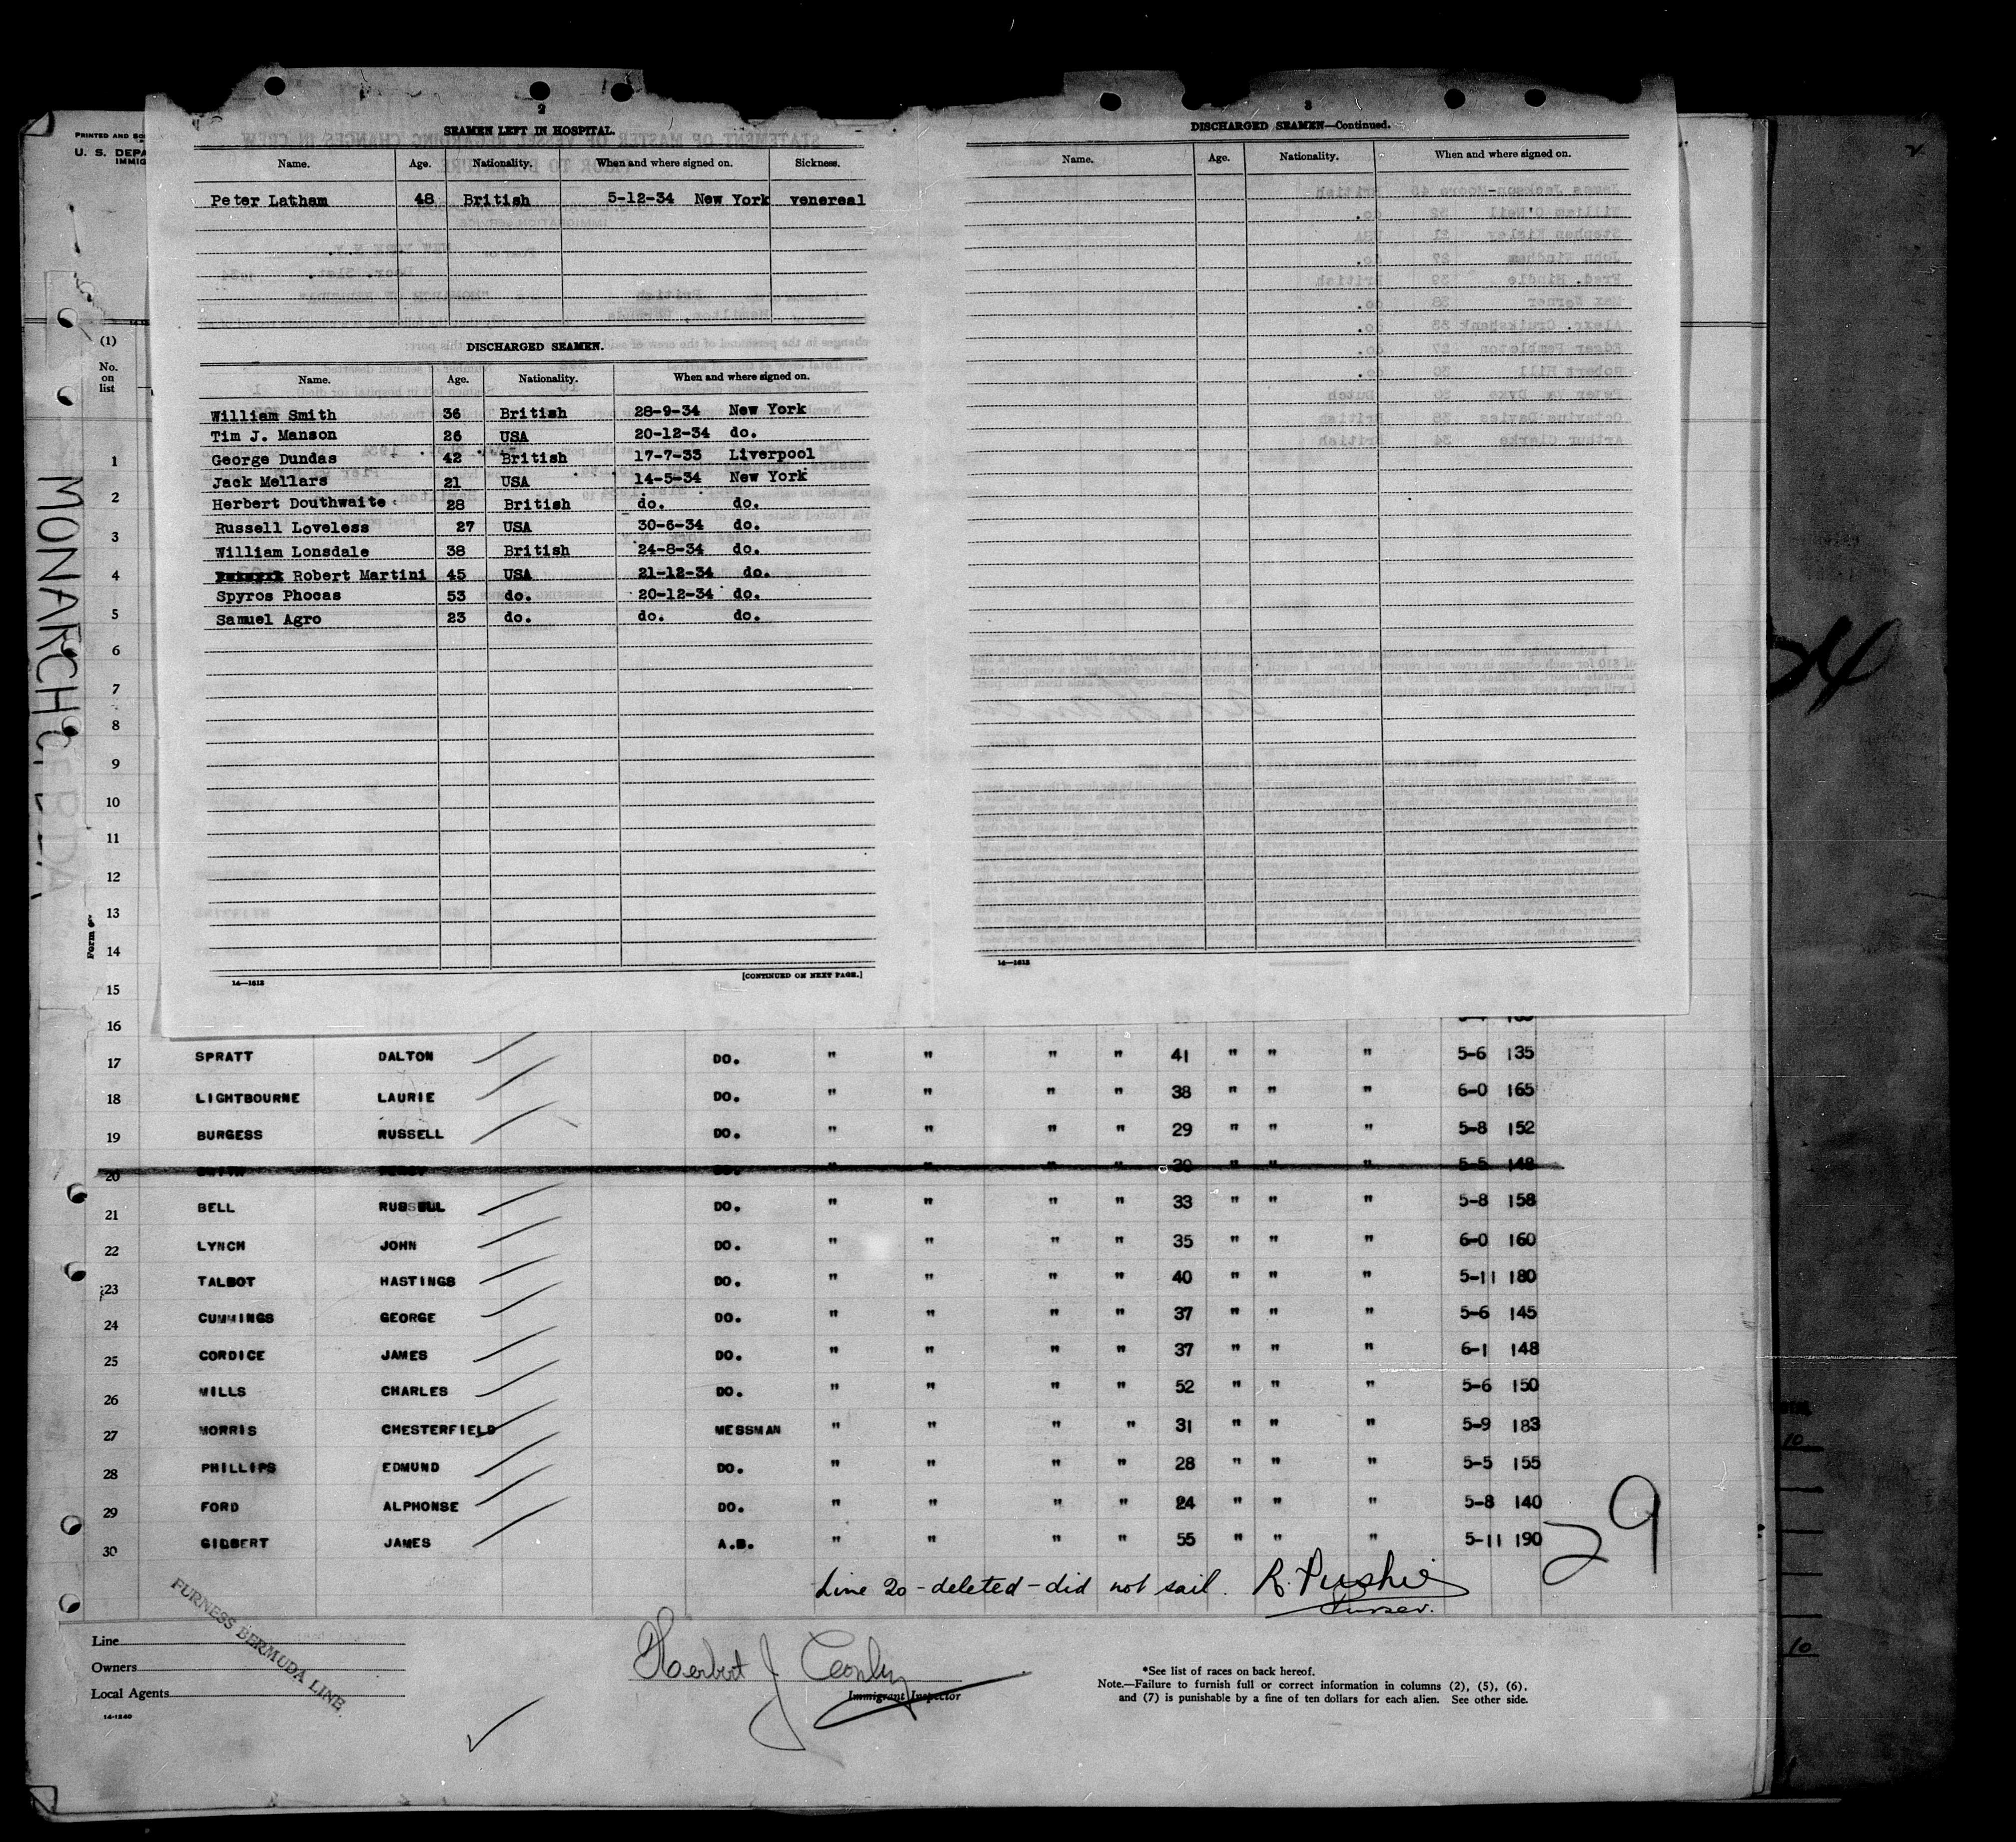 PRINTED AND
U. S. DEPA
IMMIG
2
SEAMEN LEFT IN HOSPITAL.
Name. Age. Nationality. When and where signed on. Sickness.
Peter Latham 48 British 5-12-34 New York venereal
DISCHARGED SEAMEN.
Name. Age. Nationality. When and where signed on.
William Smith 36 British 28-9-34 New York
Tim J. Manson 26 USA 20-12-34 do.
George Dundas 42 British 17-7-33 Liverpool
Jack Mellars 21 USA 14-5-34 New York
Herbert Douthwaite 28 British do. do.
Russell Loveless 27 USA 30-6-34 do.
William Lonsdale 38 British 24-8-34 do.
Robert Martini 45 USA 21-12-34 do.
Spyros Phocas 53 do. 20-12-34 do.
Samuel Agro 23 do. do. do.
14—1613
[CONTINUED ON NEXT PAGE.]
3
DISCHARGED SEAMEN—Continued.
Name. Age. Nationality. When and where signed on.
14—1613
MONARCH
34
(1)
No.
on
list
1
2
3
4
5
6
7
8
9
10
11
12
13
14
15
16
Form
17 SPRATT DALTON DO. " " " " 41 " " " 5-6 135
18 LIGHTBOURNE LAURIE DO. " " " " 38 " " " 6-0 165
19 BURGESS RUSSELL DO. " " " " 29 " " " 5-8 152
20 " " " " " " " 5-5 148
21 BELL RUSSELL DO. " " " " 33 " " " 5-8 158
22 LYNCH JOHN DO. " " " " 35 " " " 6-0 160
23 TALBOT HASTINGS DO. " " " " 40 " " " 5-11 180
24 CUMMINGS GEORGE DO. " " " " 37 " " " 5-6 145
25 CORDICE JAMES DO. " " " " 37 " " " 6-1 148
26 MILLS CHARLES DO. " " " " 52 " " " 5-6 150
27 MORRIS CHESTERFIELD MESSMAN " " " " 31 " " " 5-9 183
28 PHILLIPS EDMUND DO. " " " " 28 " " " 5-5 155
29 FORD ALPHONSE DO. " " " " 24 " " " 5-8 140
30 GIDBERT JAMES A.B. " " " " 55 " " " 5-11 190
29
Line 20 - deleted - did not sail. R. Pushie
Purser.
Line
Owners
Local Agents
14-1240
FURNESS BERMUDA LINE
Herbert J
Immigrant Inspector
*See list of races on back hereof.
Note.—Failure to furnish full or correct information in columns (2), (5), (6),
and (7) is punishable by a fine of ten dollars for each alien. See other side.
10
10